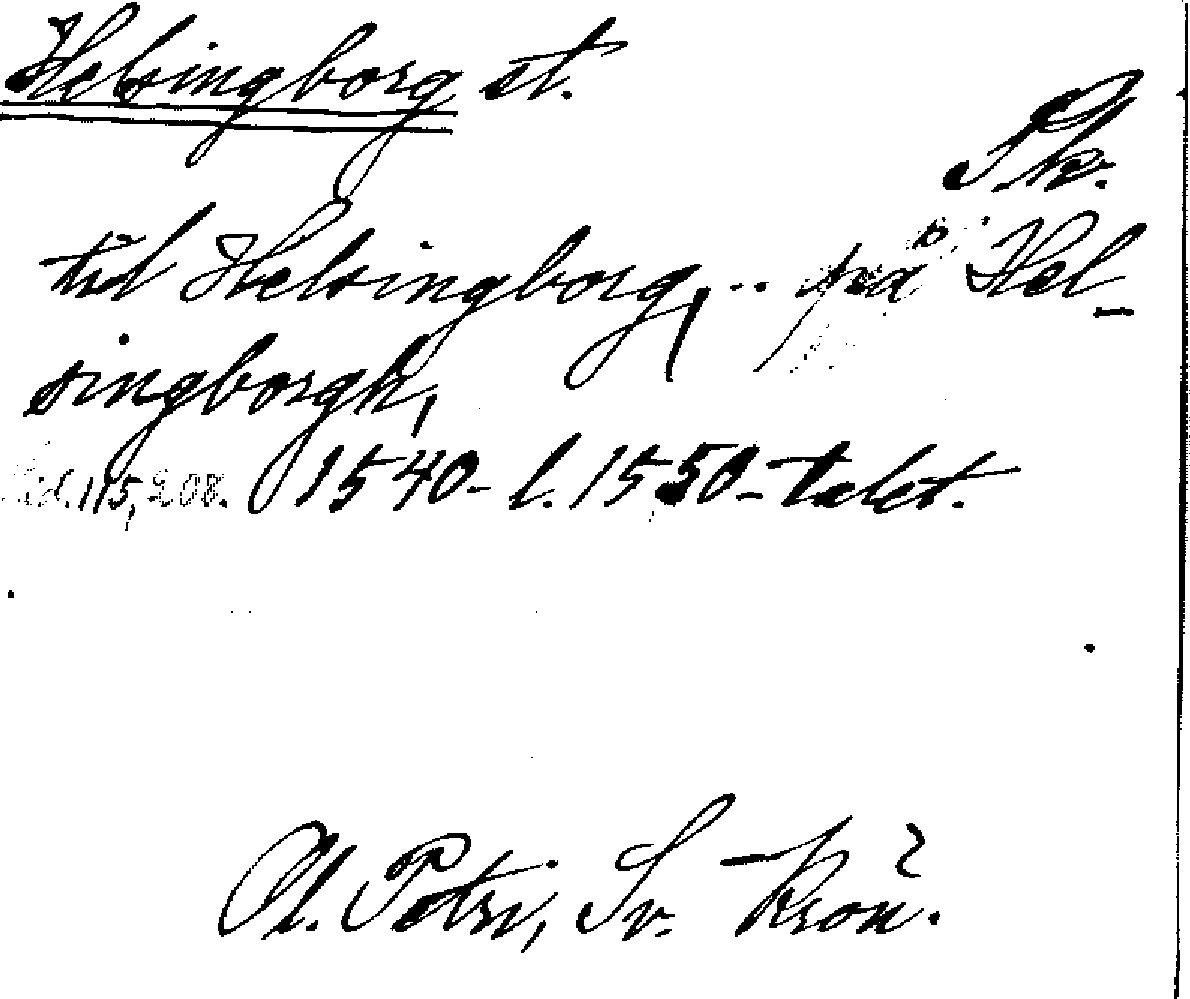 Helsingborg st.
Sk.
til Helsingborg, .. på Hel-
singborgh,
115, 208. 1540- l. 1550-talet.
Ol. Petri, Sv. Krön.